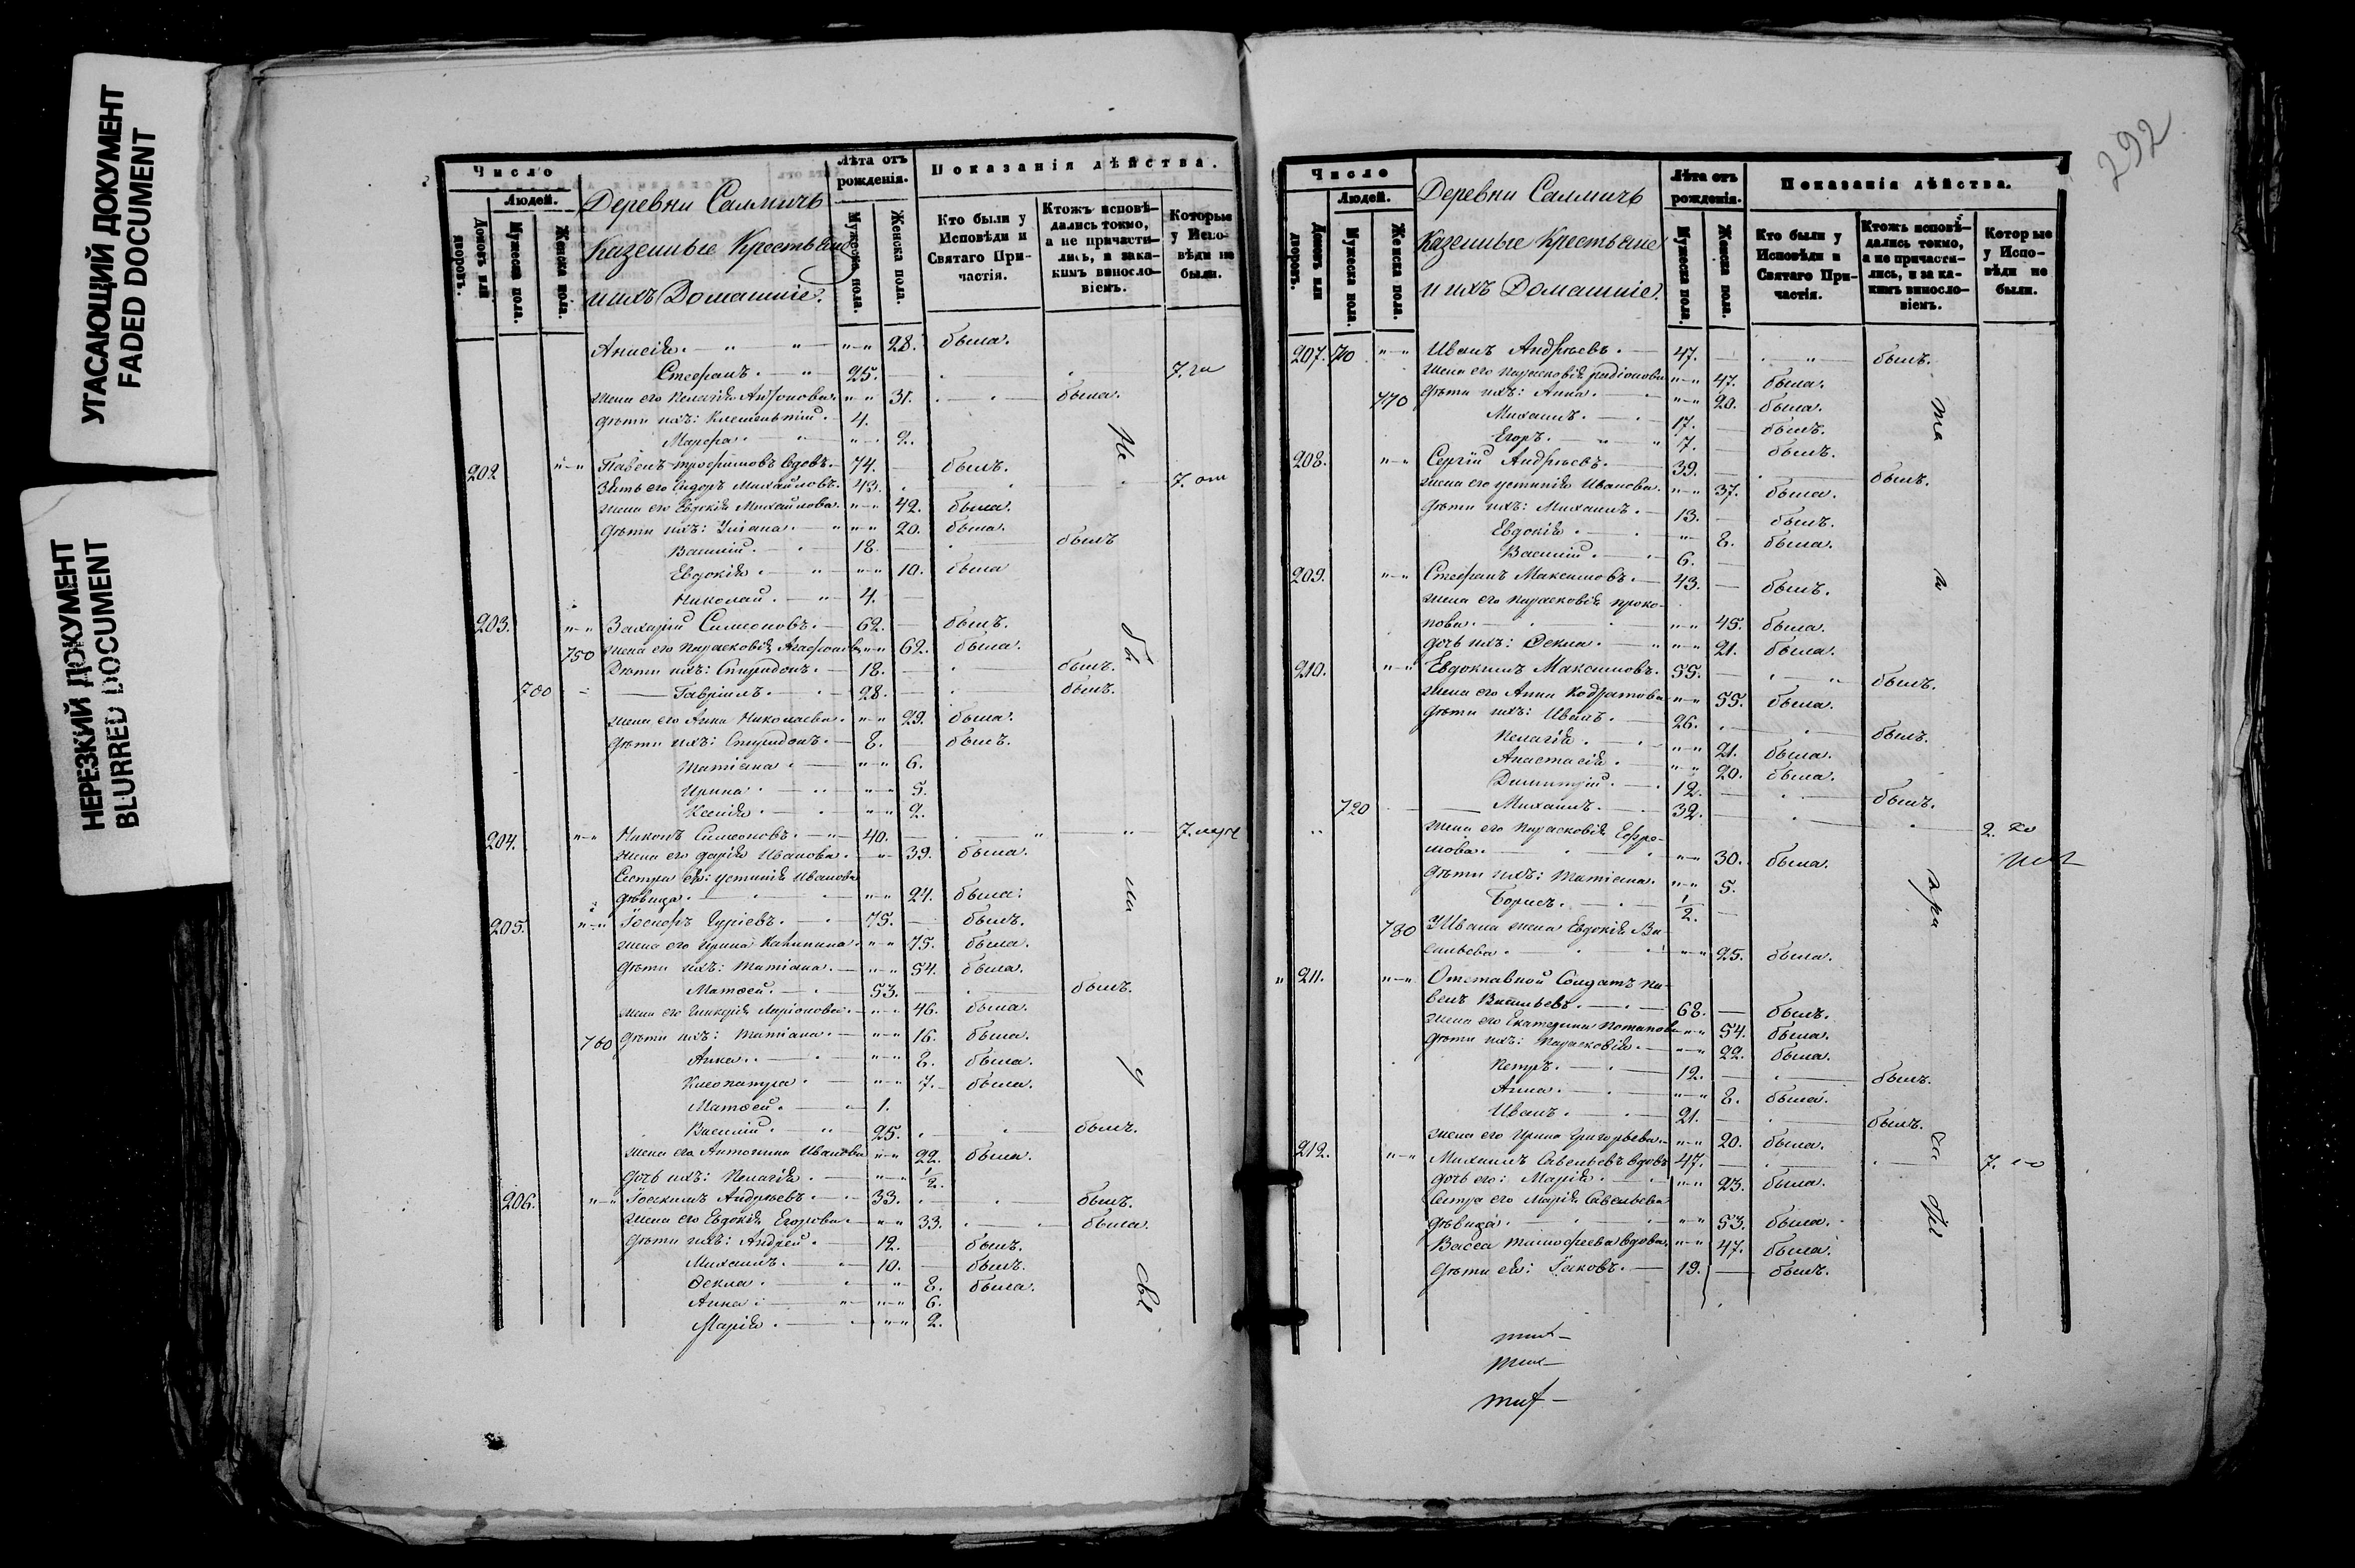 УГАСАЮЩИЙ ДОКУМЕНТ
FADED DOCUMENT
НЕРЕЗКИЙ ДОКУМЕНТ
BLURRED DOCUMENT
Число
Людей.
Домовъ или дворовъ.
Мужеска пола.
Женска пола.
Деревни
Казенные Крестьяне
и ихъ Домашніе.
Лѣта отъ рожденія.
Мужеска пола.
Женска пола.
Показанія дѣйства.
Кто были у Исповѣди и Святаго Причастія.
Ктожъ исповѣдались токмо, а не причастились, и за какимъ винословіемъ.
Которые у Исповѣди не были.
Анисія. 28. была.
Стефанъ. 25. 7.
жена его Пелагія Антонова. 31. была.
дѣти ихъ: 4.
Марфа. 2.
202 Павелъ Трофимовъ вдовъ. 74. былъ.
Зять его Сидоръ Михайловъ. 43. 7.
жена его Евдокія Михайлова. 42. была.
дѣти ихъ: Уліана. 20. была.
Василій. 18. былъ
Евдокія. 10. была
Николай. 4.
203. Захарій Симеоновъ. 62. былъ.
750 жена его Парасковія 62. была.
Дѣти ихъ: Спиридонъ. 18. былъ.
700 Гавріилъ. 28. былъ.
жена его Анна Николаева. 29. была.
дѣти ихъ: Спиридонъ. 8. былъ.
Татіана. 6.
Ирина. 5.
Ксенія. 2.
204. Никонъ Симеоновъ. 40. 7.
жена его Дарія Иванова. 39. была.
Сестра ея: Устинія Иванова
дѣвица. 24. была.
205. Іосифъ Гуріевъ. 75. былъ.
жена его Ирина Калинина. 75. была.
дѣти ихъ: Татіана. 54. была.
Матѳей. 53. былъ.
жена его Гликерія Ларіонова. 46. была.
760 дѣти ихъ: Татіана. 16. была.
Анна. 8. была.
Клеопатра. 7. была.
Матѳей. 1.
Василій. 25. былъ.
жена его Антонина Иванова 22. была.
дочь ихъ: Пелагія. 1/2.
206. Іоакимъ Андреевъ. 33. былъ.
жена его Евдокія Егорова. 33. была.
дѣти ихъ: Андрей. 12. былъ.
Михаилъ. 10. былъ.
Ѳекла. 8. была.
Анна. 6.
Марія. 2.
292
Число
Людей.
Домовъ или дворовъ.
Мужеска пола.
Женска пола.
Деревни
Казенные Крестьяне
и ихъ Домашніе.
Лѣта отъ рожденія.
Мужеска пола.
Женска пола.
Показанія дѣйства.
Кто были у Исповѣди и Святаго Причастія.
Ктожъ исповѣдались токмо, а не причастились, и за какимъ винословіемъ.
Которые у Исповѣди не были.
207. 710 Иванъ Андреевъ. 47. былъ.
жена его Парасковія Радіонова 47. была.
770 дѣти ихъ: Анна. 20. была.
Михаилъ. 17. былъ.
Егоръ. 7. былъ.
208. Сергій Андреевъ. 39. былъ.
жена его Устинія Иванова. 37. была.
дѣти ихъ: Михаилъ. 13. былъ.
Евдокія. 8. была.
Василій. 6.
209. Стефанъ Максимовъ. 43. былъ.
жена его Парасковія Проко-
пова. 45. была.
дочь ихъ: Ѳекла. 21. была.
210. Евдокимъ Максимовъ. 55. былъ.
жена его Анна Кодратова 55. была.
дѣти ихъ: Иванъ. 26. былъ.
Пелагія. 21. была.
Анастасія. 20. была.
Димитрій. 12. былъ.
720 Михаилъ. 32. 2.
жена его Парасковія Ефре-
мова. 30. была.
дѣти ихъ: Татіана. 5.
Борисъ. 1/2.
780 У Ивана жена Евдокія Ва-
сильева. 25. была.
211. Отставной Солдатъ Па-
велъ Васильевъ. 68. былъ.
жена его Екатерина Потапова 54. была.
дѣти ихъ: Парасковія. 22. была.
Петръ. 12. былъ.
Анна. 8. была.
Иванъ. 21. былъ.
жена его Ирина Григорьева. 20. была.
212. Михаилъ Савельевъ вдовъ 47. 7.
дочь его: Марія. 23. была.
Сестра его Марія Савельева
дѣвица. 53. была.
Васса Тимофеева вдова. 47. была.
Дѣти ея: Іаковъ. 19. былъ.